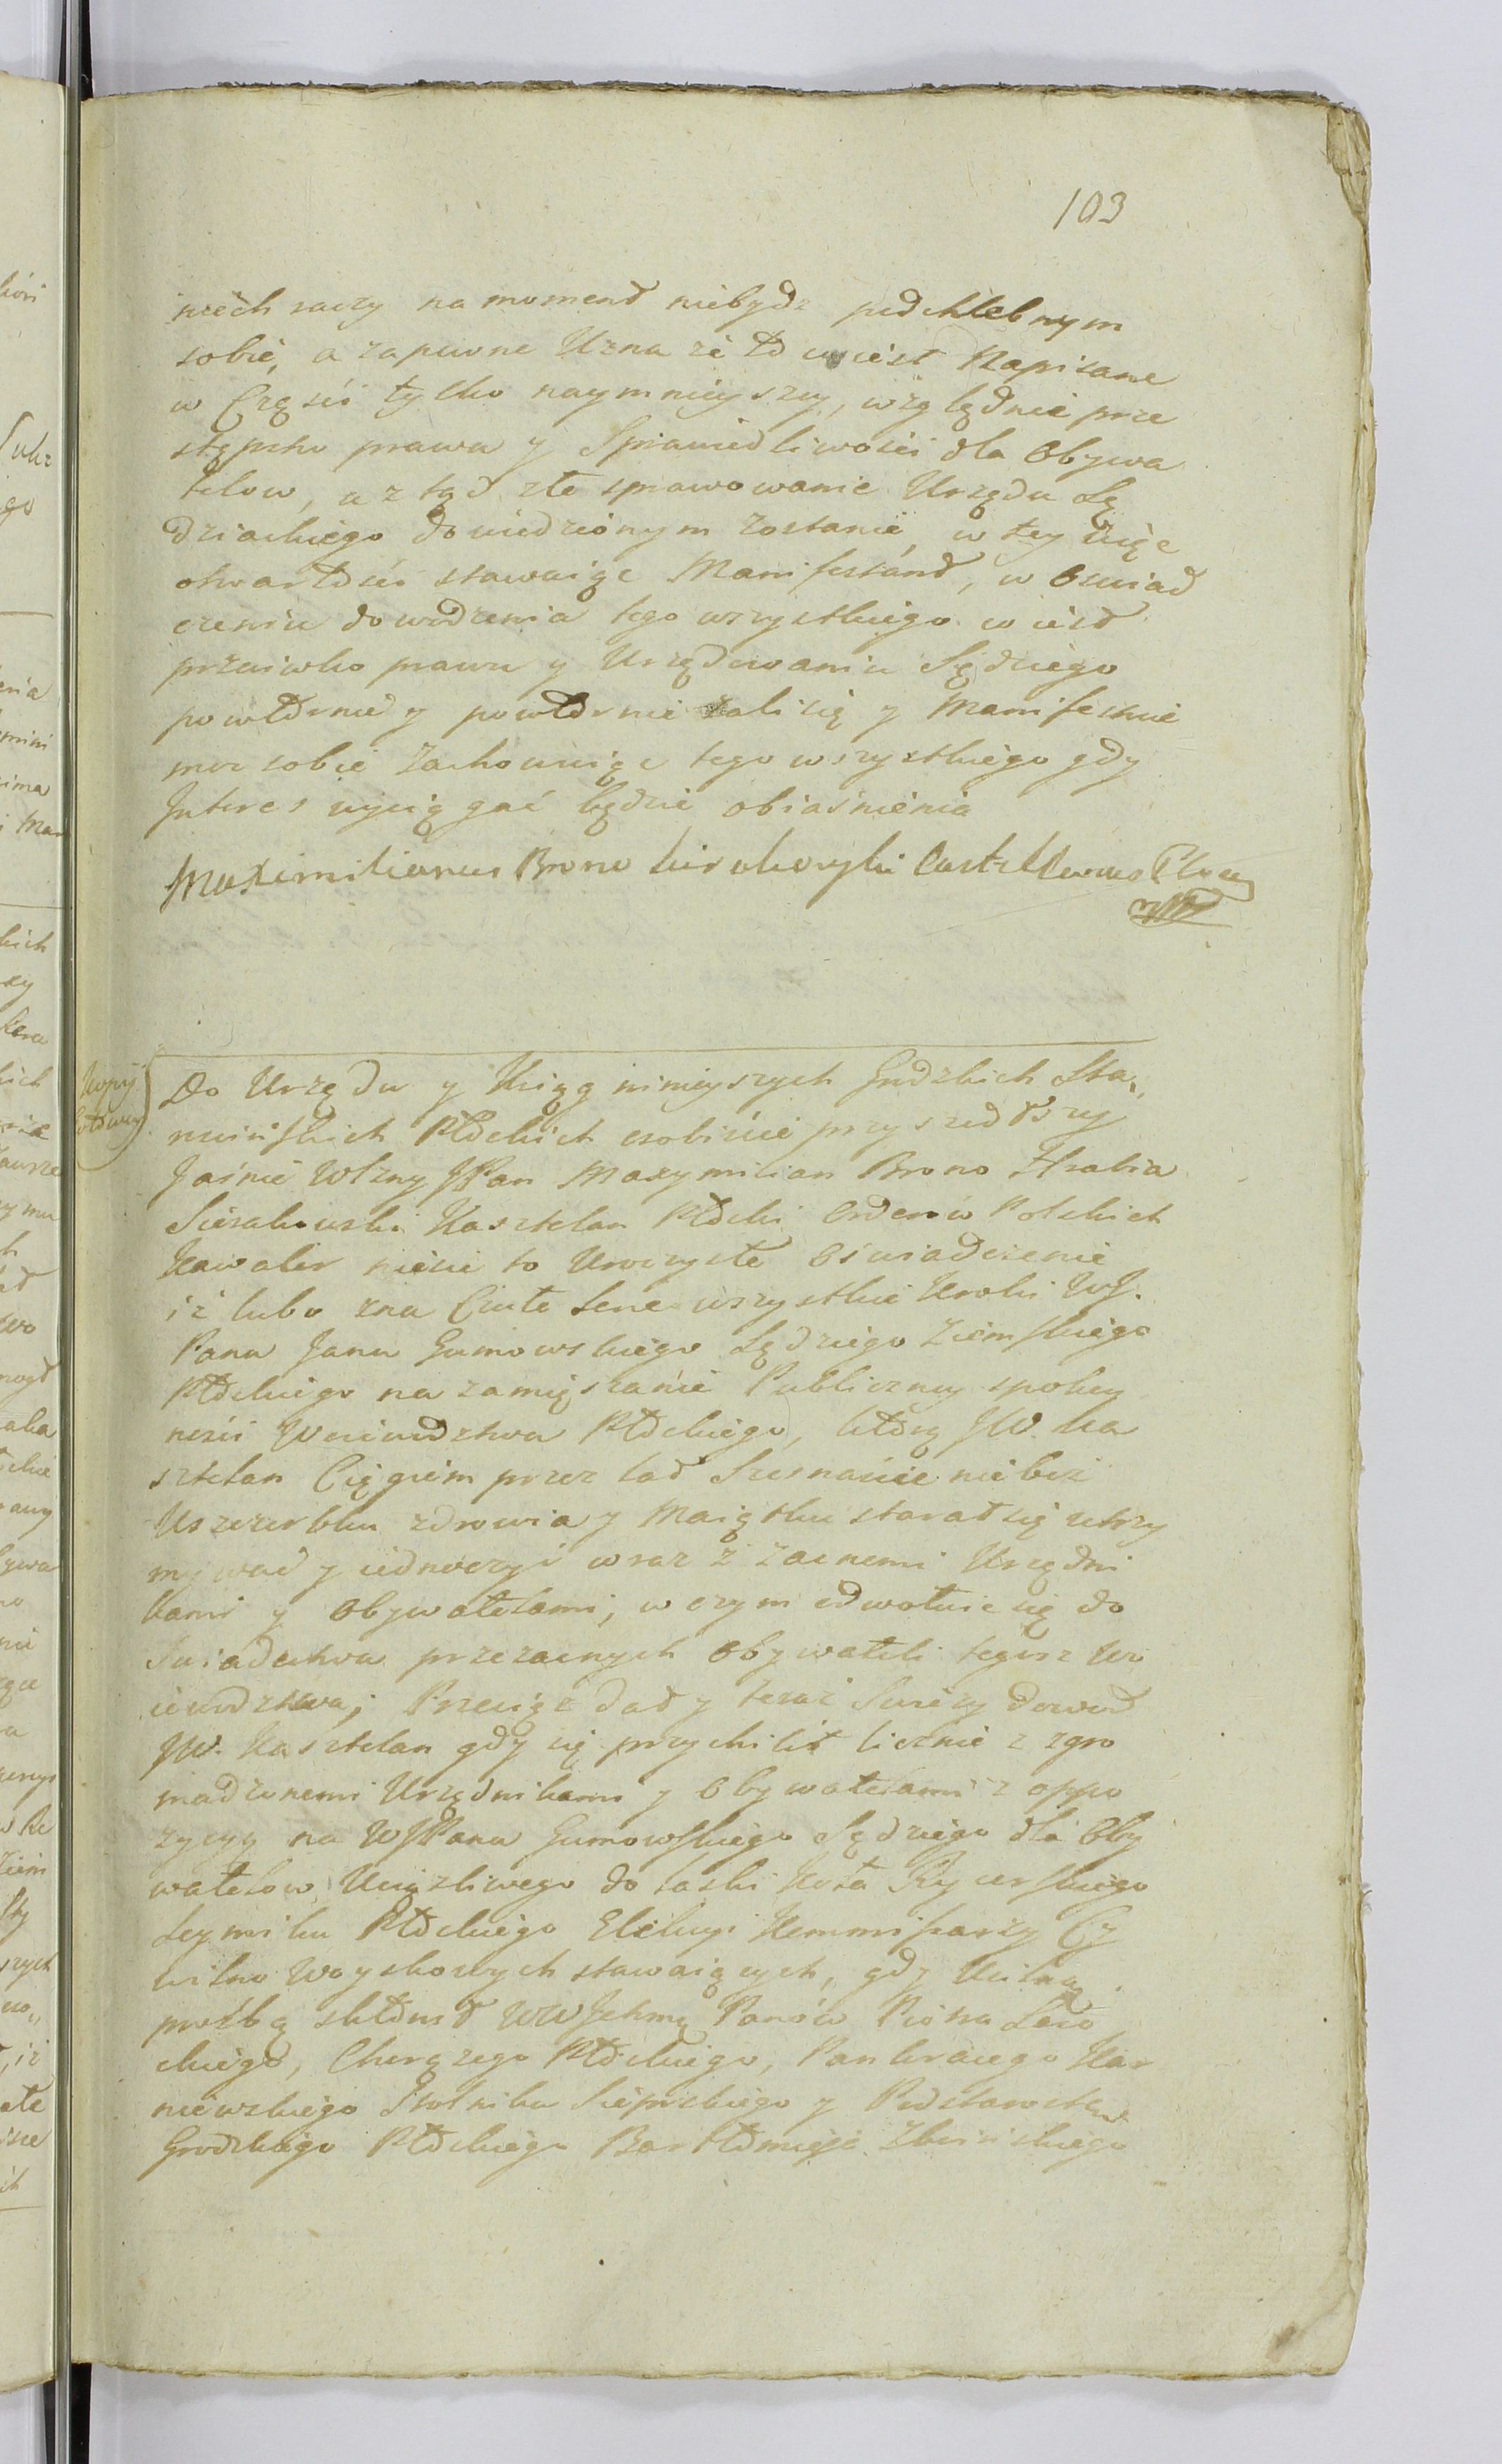 103
niech raczy na moment niebydz podchlebnym
sobie, a zapewne Uzna że to co iest Napisane
w Części tylko naymnieyszey, względnie prze
stępstw prawa y Sprawiedliwości dla Obywa
telow, a z tąd złe sprawowanie Urzędu Sę
dziackiego dowiedzionym zostanie, w tey więc
otwartości stawaiąc Manifestant, w Oswiad
czeniu dowodzenia tego wszystkiego co iest
przeciwko prawu y Urzędowaniu Sędziego
powtornie y powtornie żali się y Manifestuie
moc sobie Zachowuiąc tego wszystkiego gdy
Interes wyciągać będzie obiaśnienia
Maximilianus Brono Castellanus Ploc
Kopij
Do Urzędu y Xiąg ninieyszych Grodzkich Sta„
rościńskich Płockich osobiście przyszedłszy
Jaśnie Wlzny JPan Maxymilian Brono Hrabia
Sierakowski Kasztelan Płocki Orderów Polskich
Kawaler niesie to Uroczyste Oświadczenie
iż lubo zna Całe te wszystkie Kroki WJ.
Pana Jana Gumowskiego Sędziego Ziemskiego
Płockiego na zamięszanie Publiczney spokoy
ności Woiewodztwa Płockiego, którą JW. Ka
sztelan Ciągiem przez lat Szesnaście nie bez
Uszczerbku zdrowia y Maiątku starał się utrzy
mywać y iednoczyć wraz z zacnemi Urzędni
kami y Obywatelami, w czym odwołuie się do
Swiadectwa przezacnych Obywateli tegosz Wo
iewodztwa; Przeciąż dał y teraz Swieży dowod
JW. Kasztelan gdy się przychilił licznie z zgro
madzonemi Urzędnikami y Obywatelami z oppo
zycyy na WJPana Gumowskiego Sędziego dla Oby
watelow Uciążliwego do laski Koła Rycerskiego
Seymiku Płockiego Elekcyi Kommissarzy Cy
wilno Woyskowych stawaiących, gdy Usilną
prośbą skłonił WWJchmę Panów Piotra
ckiego, Chorążego Płockiego, Pankracego Kar
niewskiego Stolnika Sieprskiego y Podstarostę
Grodzkiego Płockiego Bartłomieja Zboińskiego